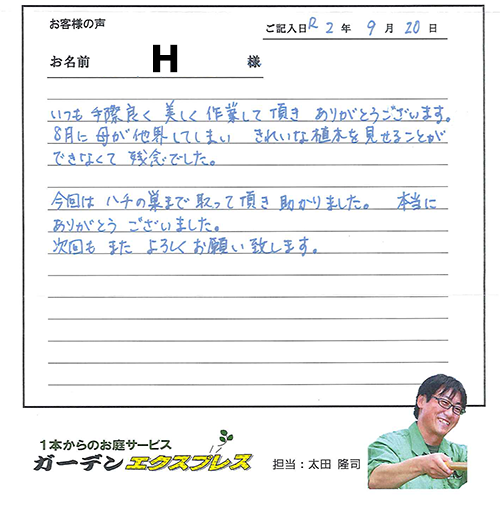 お客様の声
ご記入日 R2年 9月 20日
お名前 H 様
いつも手際良く美しく作業して頂き ありがとうございます。
8月に母が他界してしまい きれいな植木を見せることが
できなくて残念でした。
今回はハチの巣まで取って頂き助かりました。 本当に
ありがとうございました。
次回もまたよろしくお願い致します。
1本からのお庭サービス
ガーデンエクスプレス
担当:太田 隆司